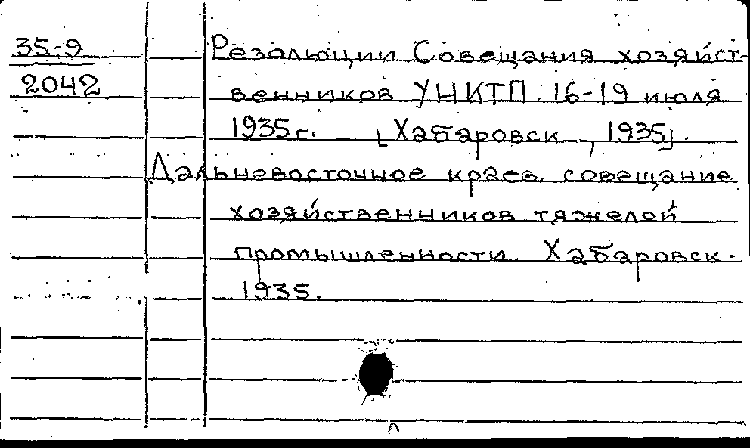 35-9
2042
Резолюции Совещания хозяйст-
венников УНКТП. 16-19 июля
1935г. [Хабаровск, 1935].
Дальневосточное краев. совещание
хозяйственников тяжелой
промышленности. Хабаровск.
1935.